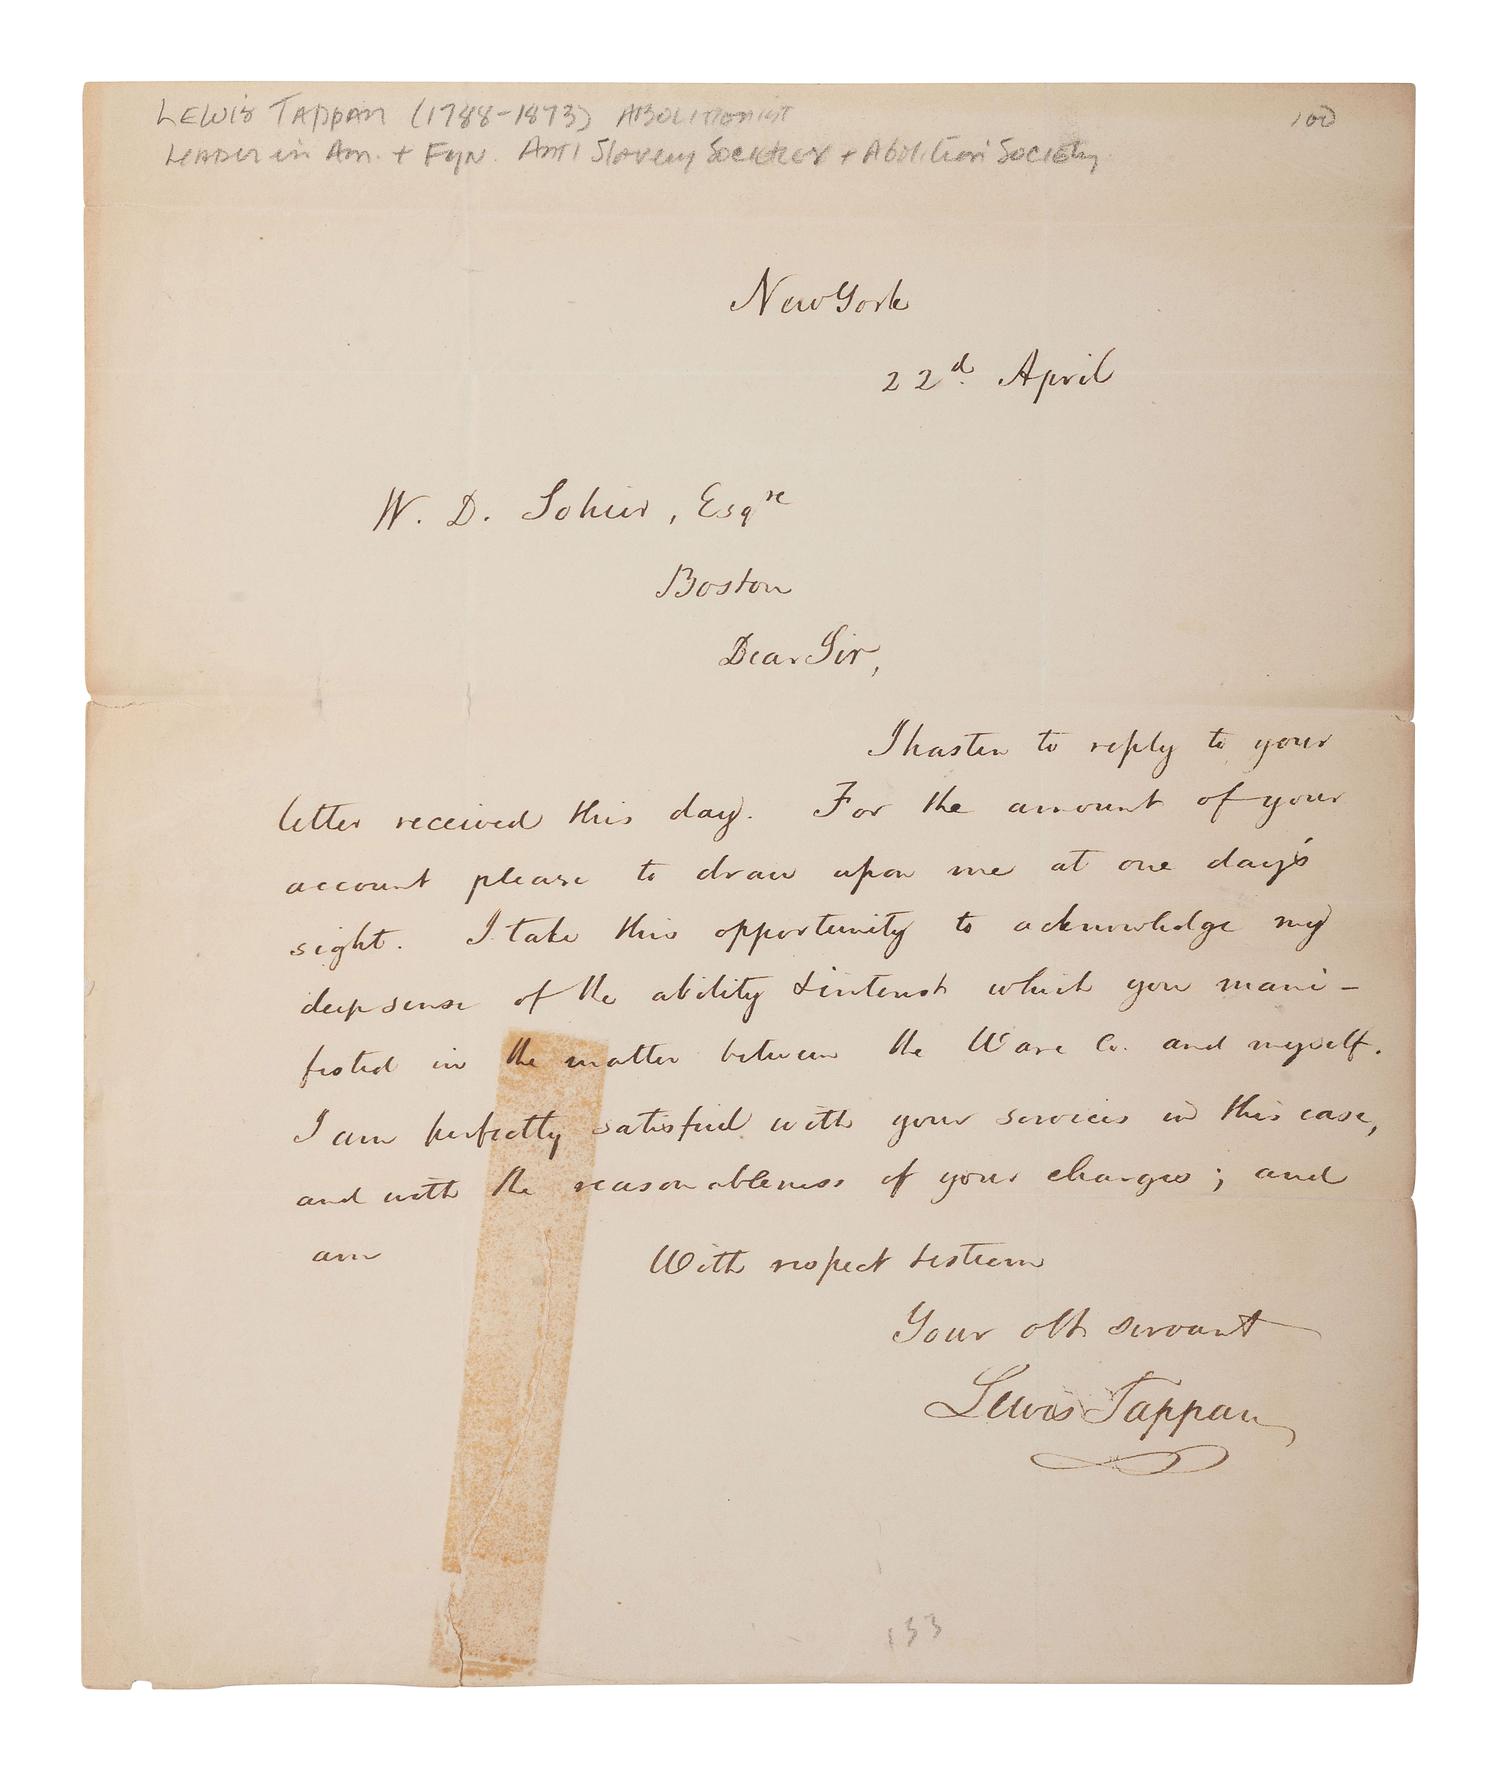 LEWIS TAPPAN (1788-1873) ABOLITIONIST
100
LEADER in Am. + Fgn. Anti Slavery Societies + Abolition Society
New York
22d. April
W. D. Sohier, Esqre
Boston
Dear Sir,
I hasten to reply to your
letter received this day. For the amount of your
account please to draw upon me at one day's
sight. I take this opportunity to acknowledge my
deep sense of the ability & interest which you mani-
fested in the matter between the Ware Co. and myself.
I am perfectly satisfied with your services in this case,
and with the reasonableness of your charges; and
am With respect & esteem
Your obt servant
Lewis Tappan
133